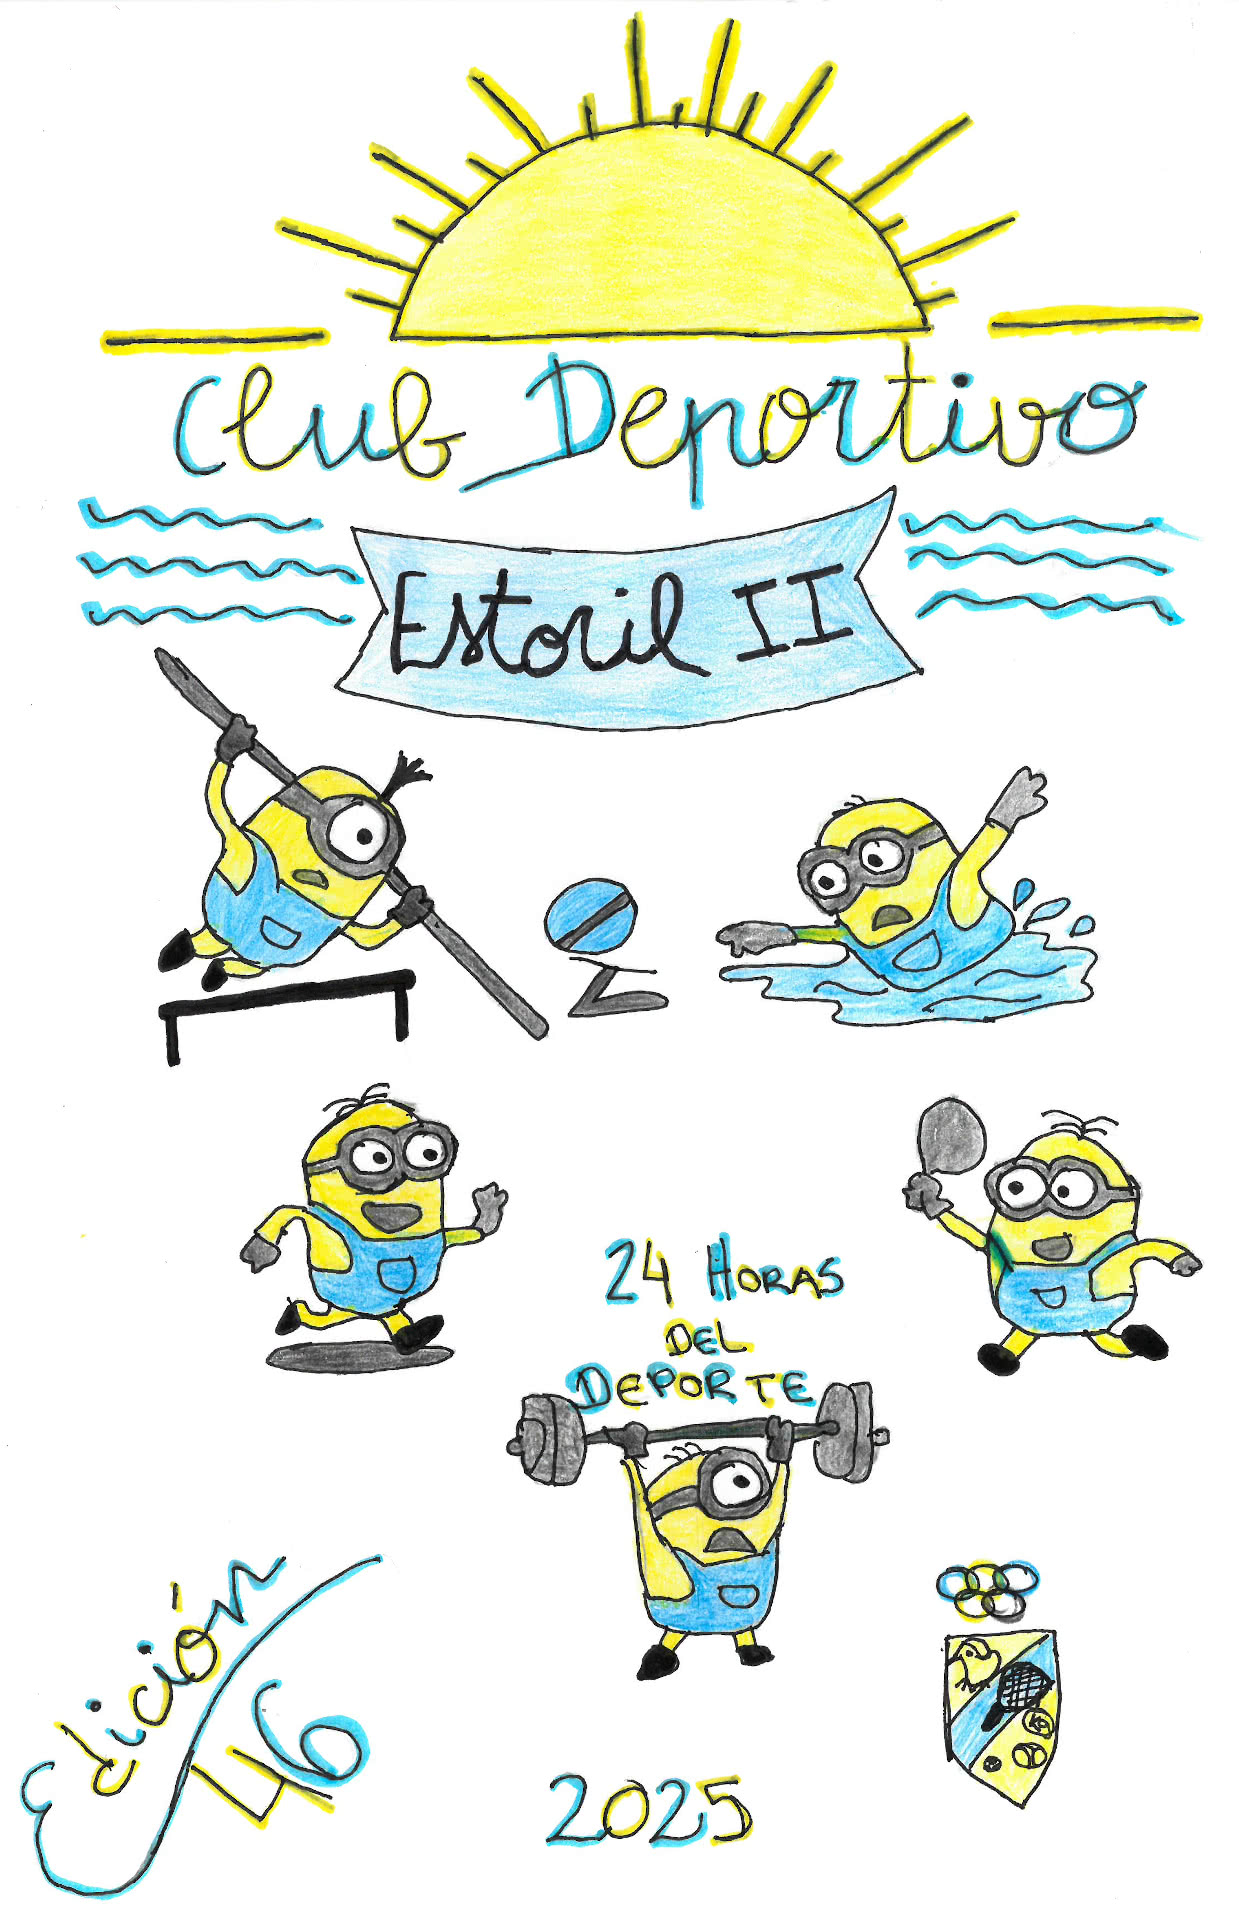 Club Deportivo
Estoril II
24 HORAS
DEL
DEPORTE
Edición
46
2025